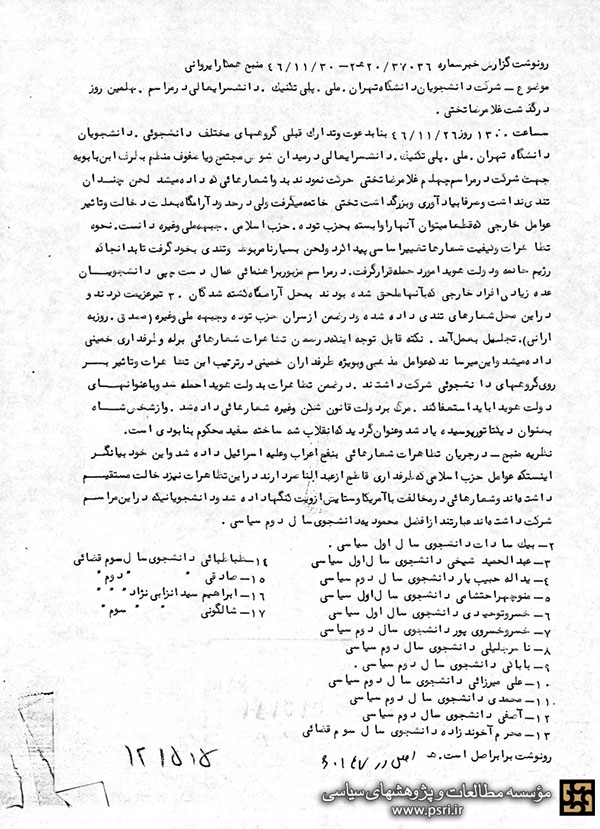 رونوشت گزارش خبر شماره ۲۰/۳۷۰۳۶هـ۲ – ۴۶/۱۱/۳۰ منبع همتار ایروانی
موضوع – شرکت دانشجویان دانشگاه تهران . ملی . پلی تکنیک . دانشسرایعالی در مراسم . چهلمین روز
درگذشت غلامرضا تختی .
ساعت ۱۳۰۰ روز ۴۶/۱۱/۲۶ بنا بدعوت و تدارک قبلی گروههای مختلف دانشجوئی . دانشجویان
دانشگاه تهران . ملی . پلی تکنیک . دانشسرایعالی در میدان شوش مجتمع و با صفوف منظم بطرف ابن بابویه
جهت شرکت در مراسم چهلم غلامرضا تختی حرکت نمودند بدوا شعارهائی که داده میشد لحن چندان
تندی نداشت و صرفا بیادآوری و بزرگداشت تختی خاتمه میگرفت ولی در حدود آرامگاه بعلت دخالت و تاثیر
عوامل خارجی که قطعا میتوان آنها را وابسته بحزب توده . حزب اسلامی . جبهه ملی وغیره دانست . نحوه
تظاهرات و کیفیت شعارها تغییر اساسی پیدا کرد و لحن بسیار نامربوط و تندی بخود گرفت تا بدانجا که
رژیم حاکمه و دولت هویدا مورد حمله قرار گرفت . در مراسم مزبور براهنمائی عمال دست چپی دانشجویان
عده زیادی افراد خارجی که بآنها ملحق شده بودند بمحل آرامگاه کشته شدگان ۳۰ تیر عزیمت کردند و
در این محل شعارهای تندی داده شد و در ضمن از سران حزب توده و جبهه ملی وغیره (مصدق . روزبه
ارانی ) . تجلیل بعمل آمد . نکته قابل توجه اینکه در ضمن تظاهرات شعارهائی برله و طرفداری خمینی
داده میشد و این میرساند که عوامل مذهبی و بویژه طرفداران خمینی در ترتیب این تظاهرات و تاثیر بر
روی گروههای دانشجوئی شرکت داشتند . در ضمن تظاهرات بدولت هویدا حمله شد و با عنوانهای
دولت هویدا باید استعفا کند . مرگ بر دولت قانون شکن وغیره شعارهائی داده شد . و از شخص شاه
بعنوان دیکتاتور پوسیده یاد شد و عنوان گردید که انقلاب شه ساخته سفید محکوم بنابودی است .
نظریه منبع – در جریان تظاهرات شعارهائی بنفع اعراب و علیه اسرائیل داده شد و این خود بیانگر
اینستکه عوامل حزب اسلامی که طرفداری قاطع از عبدالناصر دارند در این تظاهرات نیز دخالت مستقیم
داشته‌اند و شعارهائی در مخالفت با آمریکا و ستایش از ویت کنگها داده شد و دانشجویانیکه در این مراسم
شرکت داشته‌اند عبارتند از افضل محمودیه دانشجوی سال دوم سیاسی .
۲– بیک سادات دانشجوی سال اول سیاسی .
۳– عبدالحمید شیخی دانشجوی سال اول سیاسی
۴– یداله حبیب یار دانشجوی سال دوم سیاسی
۵– منوچهر احتشامی دانشجوی سال اول سیاسی
۶– خسرو توحیدی دانشجوی سال اول سیاسی
۷– خسرو خسروی پور دانشجوی سال دوم سیاسی
۸– ناصر جلیلی دانشجوی سال دوم سیاسی
۹– بابائی دانشجوی سال دوم سیاسی .
۱۰– علی میرزائی دانشجوی سال دوم سیاسی
۱۱– محمدی دانشجوی سال دوم سیاسی
۱۲– آصفی دانشجوی سال دوم سیاسی
۱۳– محرم آخوندزاده دانشجوی سال سوم قضائی
۱۴– طباطبائی دانشجوی سال سوم قضائی
۱۵– صادقی " " دوم "
۱۶– ابراهیم سیدانزابی نژاد " " "
۱۷– شالگونی " " سوم "
رونوشت برابر اصل است . هـ اصل در ۳۰۱۴۷
مؤسسه مطالعات و پژوهشهای سیاسی
www.psri.ir